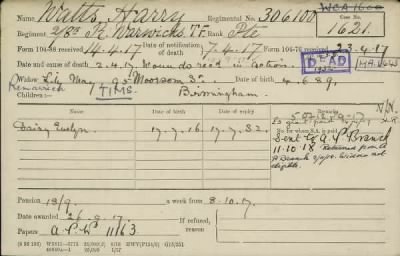 Name Watts, Harry Regimental No. 306100 WCA
Regiment 2/8th R. Warwicks. T.F. Rank Pte Case No. 1621.
Form 104-88 received 14.4.17 Date of notification of death 7.4.17 Form 104-76 received 23.4.17
Date and cause of death 2.4.17 Wounds recd in action. DEAD
Widow Lily May 9 Moorsom St. 4.6.89.
Remarried TIMS. Birmingham.
Children:—
Date of birth Date of expiry
Daisy Evelyn. 17.7.16. 17.7.32.
N/N.
A.P. Branch
11.10.18 Returned from A
P Branch Widow not
eligible.
Pension 18/9. a week from 8.10.17.
Date awarded 26.9.17.
Papers 11/63.